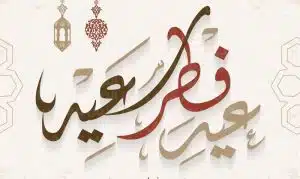 عيد فطر سعيد